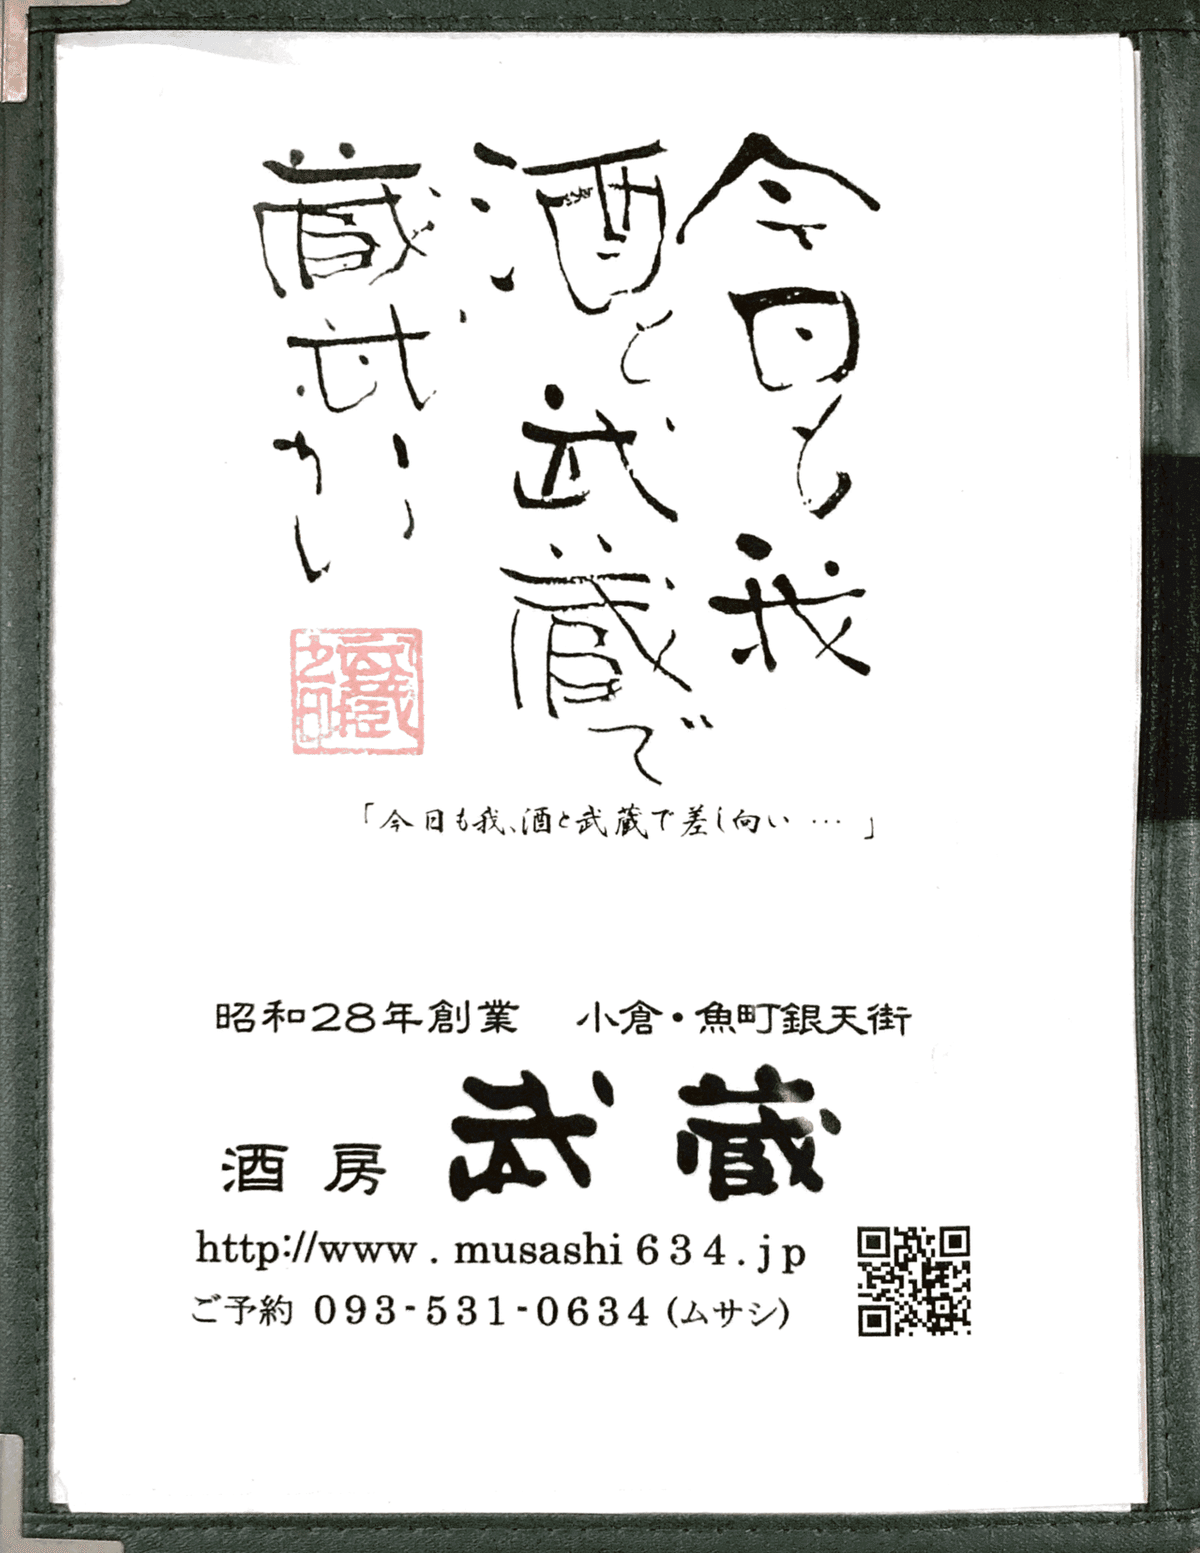 今日も我
酒と武蔵で
「今日も我、酒と武蔵で差し向い…」
昭和28年創業　小倉・魚町銀天街
酒房 武蔵
http://www.musashi634.jp
ご予約 093-531-0634 (ムサシ)